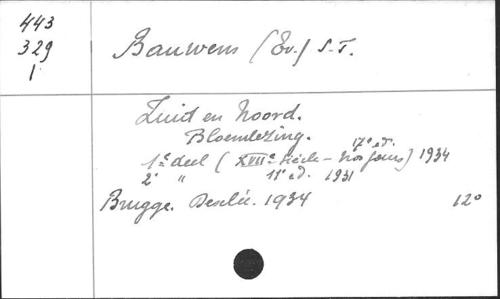 443
329
1
Bauwens (Ev.) S.J.
Zuid en Noord.
Bloemlezing.
17e ed.
1e deel (XVIIe siècle - nos jours) 1934
2e " 11e ed. 1931
Brugge. Desclée. 1934 12°